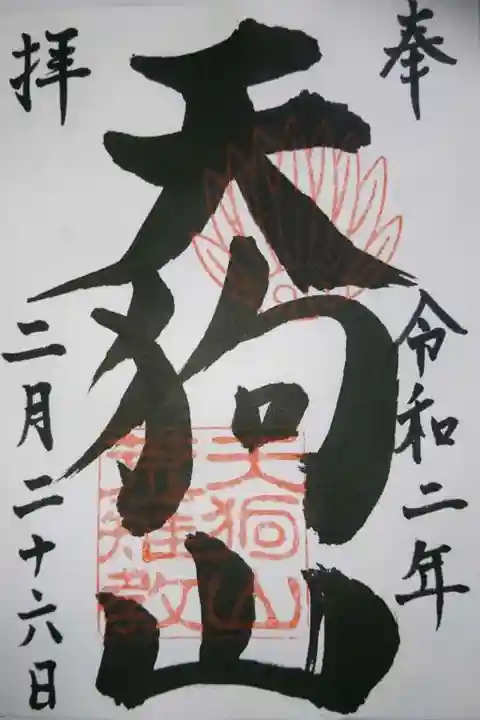 奉
令和二年
天狗山
拝
二月二十六日
天狗山